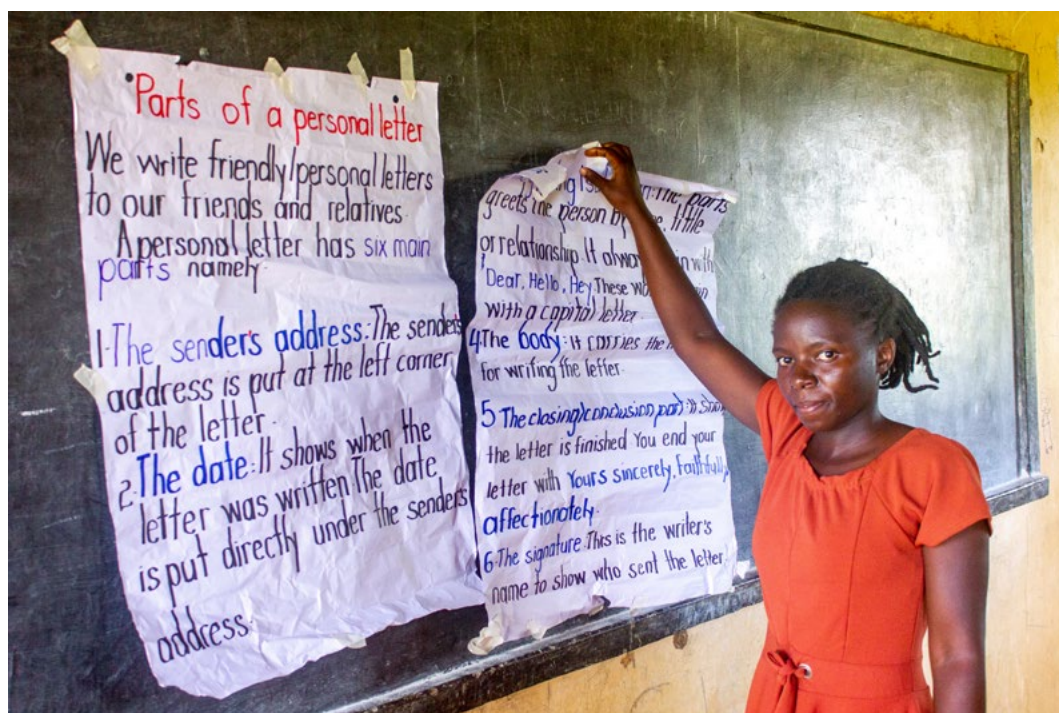 Parts of a personal letter
We write friendly/personal letters
to our friends and relatives.
A personal letter has six main
parts namely.
1. The sender's address: The sender's
address is put at the left corner
of the letter.
2. The date: It shows when the
letter was written. The date
is put directly under the senders
address.
The parts
greets the person by title
or relationship. It with
Dear, Hello, Hey. These
with a capital letter.
4. The body: it carries the
for writing the letter.
5 The closing/conclusion part: It
the letter is finished You end your
letter with Yours sincerely, Faithfully,
affectionately.
6. The signature. This is the writer's
name to show who sent the letter.